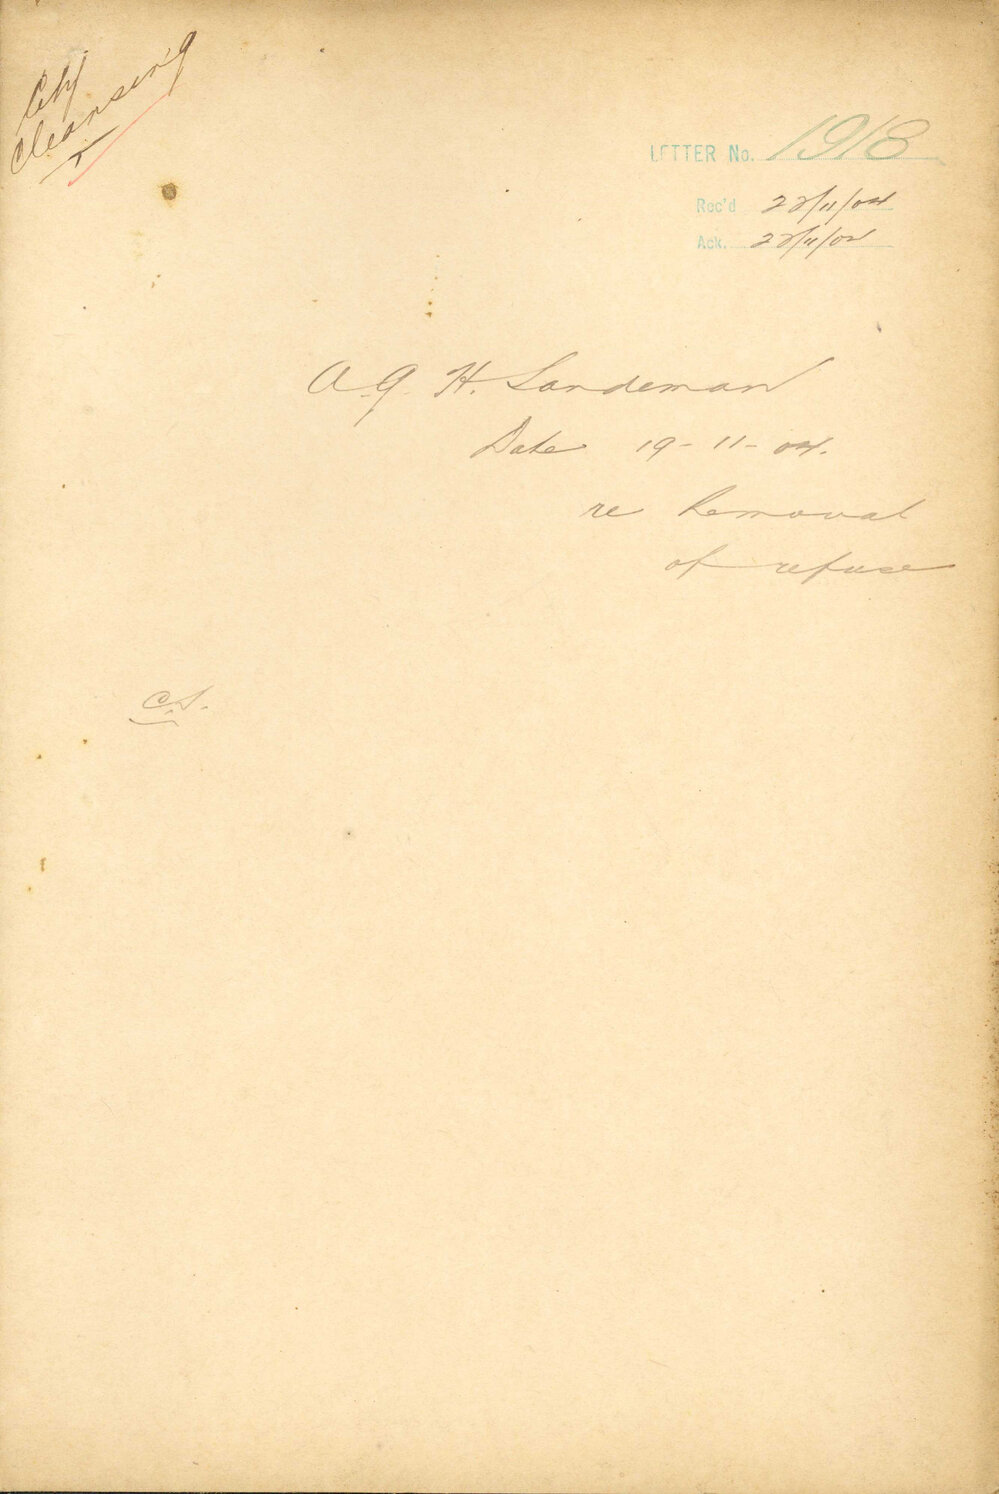 City
Cleansing
LETTER No. 1918
Rec'd 22/11/04
Ack. 22/11/04
A. G. H. Sandeman
Date 19-11-04.
re Removal
of refuse
C.S.